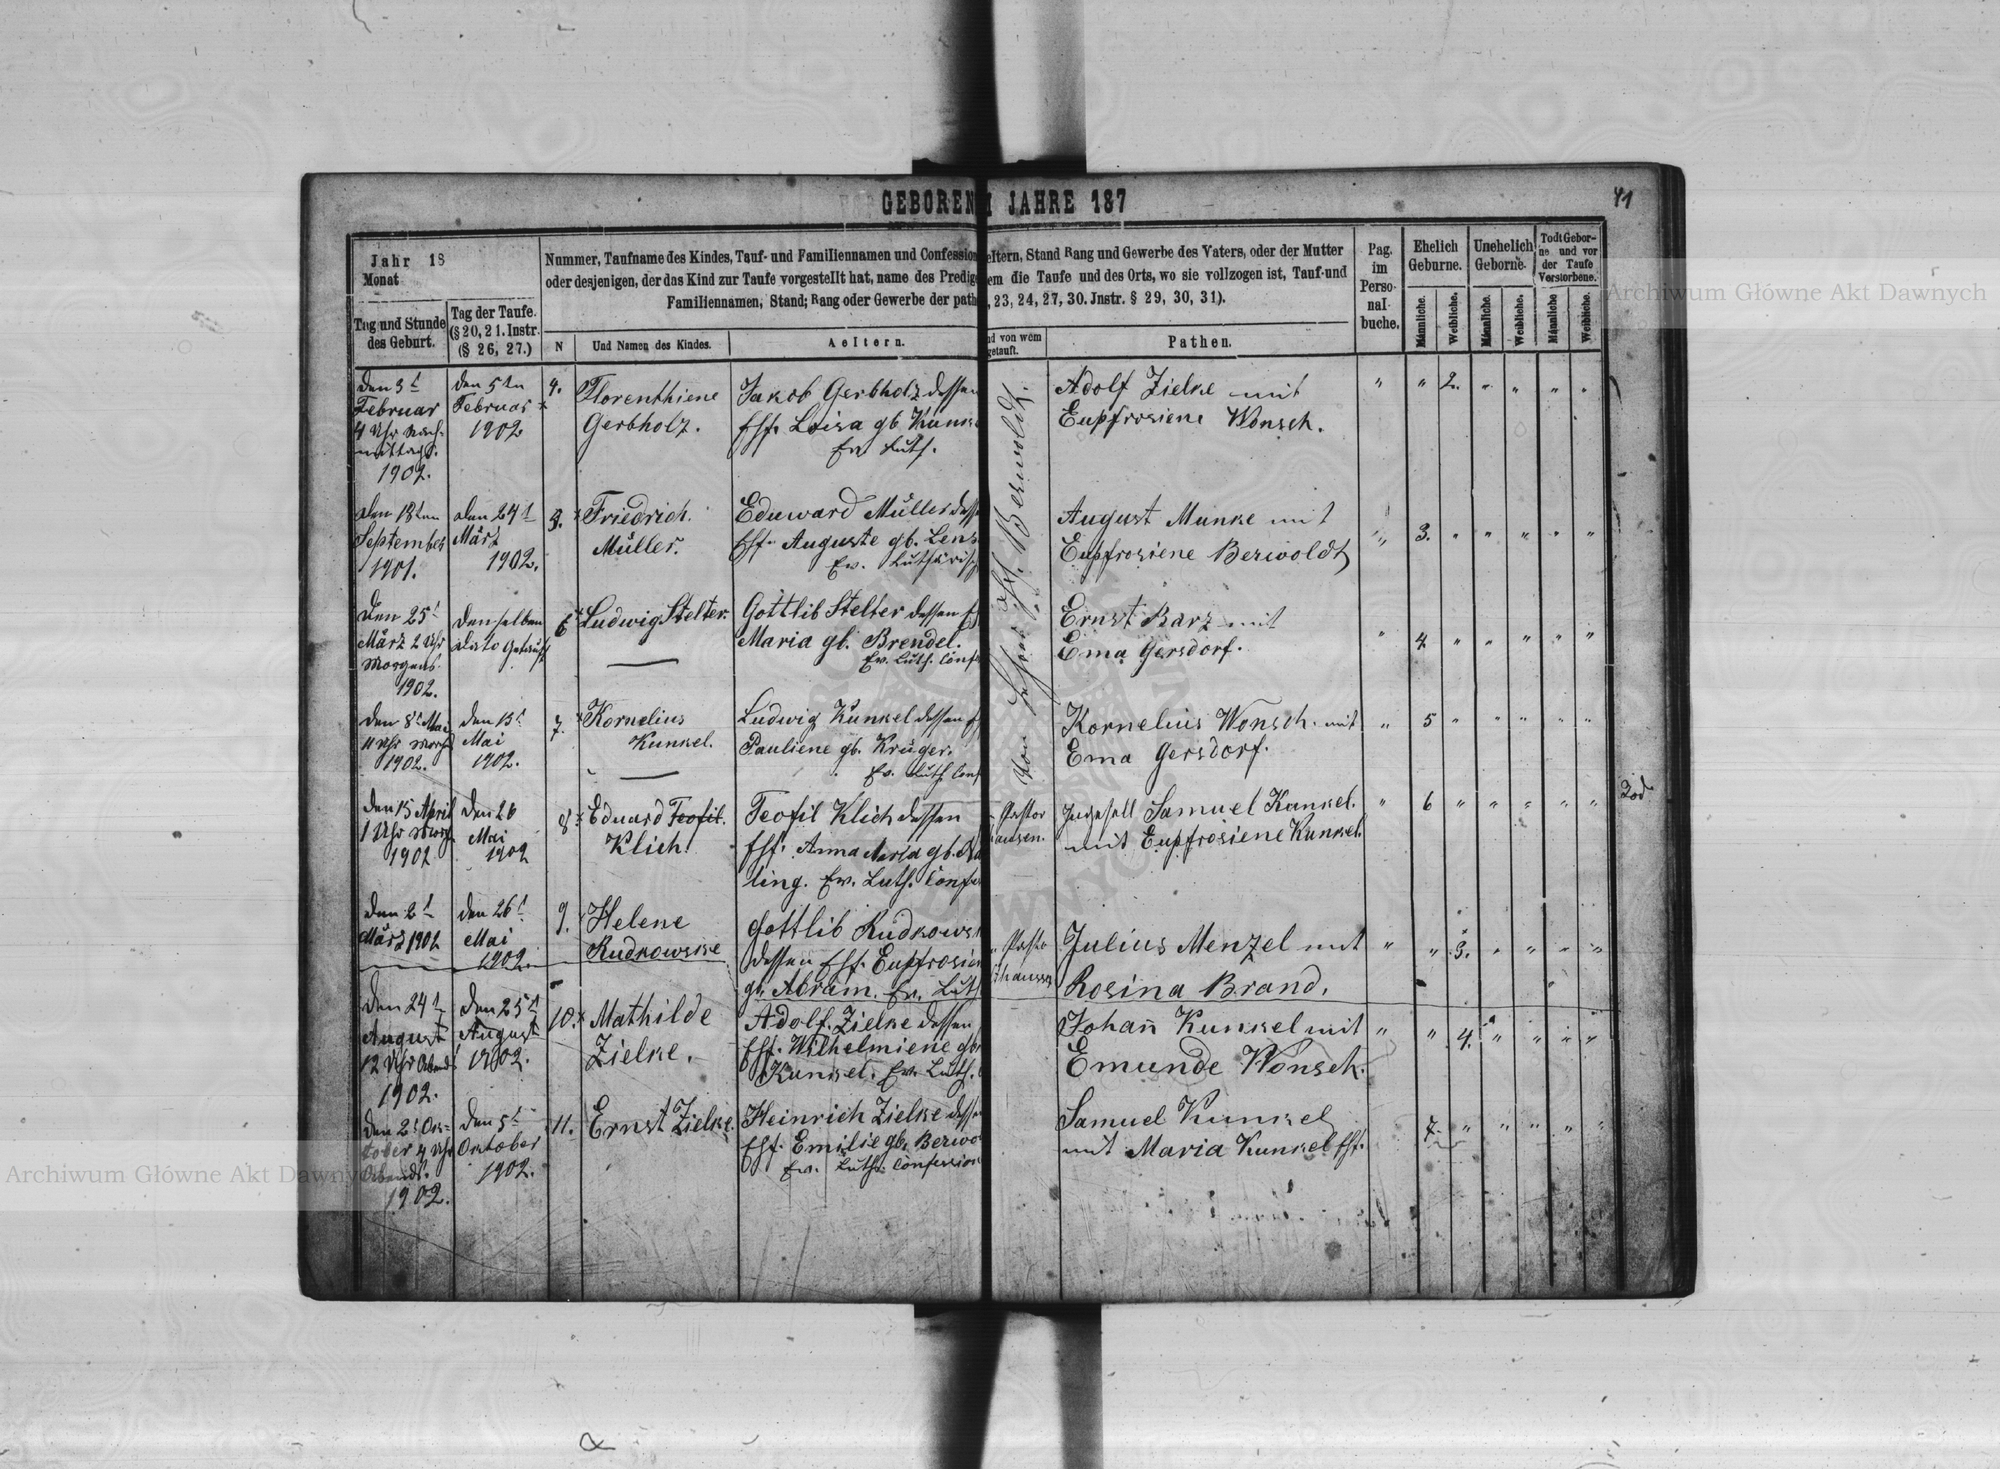 GEBOREN JAHRE 187
41
Jahr 18
Monat
Tag und Stunde
des Geburt.
Tag der Taufe.
(§ 20, 21. Instr.
(§ 26, 27.)
Nummer, Taufname des Kindes, Tauf- und Familiennamen und Confession eltern, Stand Rang und Gewerbe des Vaters, oder der Mutter
oder desjenigen, der das Kind zur Taufe vorgestellt hat, name des Predig em die Taufe und des Orts, wo sie vollzogen ist, Tauf-und
Familiennamen, Stand; Rang oder Gewerbe der path , 23, 24, 27, 30. Jnstr. § 29, 30, 31).
N
Und Namen des Kindes.
Aeltern.
nd von wem
getauft.
Pathen.
Pag.
im
Perso-
nal-
buche.
Ehelich
Geburne.
Unehelich
Geborne.
Todt Gebor-
ne und vor
der Taufe
Verstorbene.
Männliche.
Weibliche.
Männliche.
Weibliche.
Männliche
Weibliche.
den 3t
Februar
4 Uhr Nach-
mittags.
1902.
den 5ten
Februar
1902
4.
Florenthiene
Gerbholz.
Jakob Gerbholz dessen
Ehf. Loisa gb Kunke
Ev Luth.
Adolf Zielke mit
Eupfrosiene Wonsch.
" " 2. " " " "
den 18ten
September
1901.
den 24t
März
1902.
Friedrich.
Müller.
Eduward Müller desse
Ehf. Auguste gb. Lens
Ev. Luthärisch
August Munke mit
Eupfrosiene Berwoldt
" 3. " " " " "
Den 25t
März 2 Uhr
Morgens.
1902.
Denselben
Dato Getauft
6
Ludwig Stelter.
Gottlib Stelter dessen E
Maria gb. Brendel.
Ev. Luth. Conf
Ernst Barz mit
Ema Gersdorf.
" 4. " " " " "
den 8t Mai
11 Uhr Morg
1902.
den 13t
Mai
1902.
7.
Kornelius
Kunkel.
Ludwig Kunkel dessen E
Pauliene gb. Krüger.
Ev. Luth Conf
Kornelius Wonsch. mit
Ema Gersdorf.
" 5 " " " " "
den 15 April
1 Uhr Morg.
1902
den 26
Mai
1902
8
Eduard Teofil.
Klich.
Teofil Klich dessen
Ehf. Anna Maria gb.
ling. Ev. Luth. Conf
Pastor
hausen.
Jungesell Samuel Kunkel.
mit Eupfrosiene Kunkel.
" 6 " " " " "
Tod
den 2t
März 1902
den 26t
Mai
1902.
9.
Helene
Rudkowske
Gottlib Rudkows
dessen Ehf. Eupfrosien
gb. Abram. Ev. Luth
Pasto
thausen
Julius Menzel mit
Rosina Brand.
" " 3. " " " "
den 24t
August
12 Uhr Abends
1902.
den 25t
August
1902.
10.
Mathilde
Zielke.
Adolf. Zielke dessen
Ehf. Wilhelmiene gb
Kunkel. Ev. Luth.
Johañ Kunkel mit
Emunde Wonsch.
" " 4. " " " "
den 2t Ok-
tober 4 Uhr
Abends.
1902.
den 5t
Oktober
1902.
11.
Ernst Zielke.
Heinrich Zielke desse
Ehf. Emilie gb. Berwo
Ev. Luth. Confession
Samuel Kunkel
mit Maria Kunkel Ehf.
7. " " " " "
Berwoldt.
Archiwum Główne Akt Dawnych
Archiwum Główne Akt Dawnych